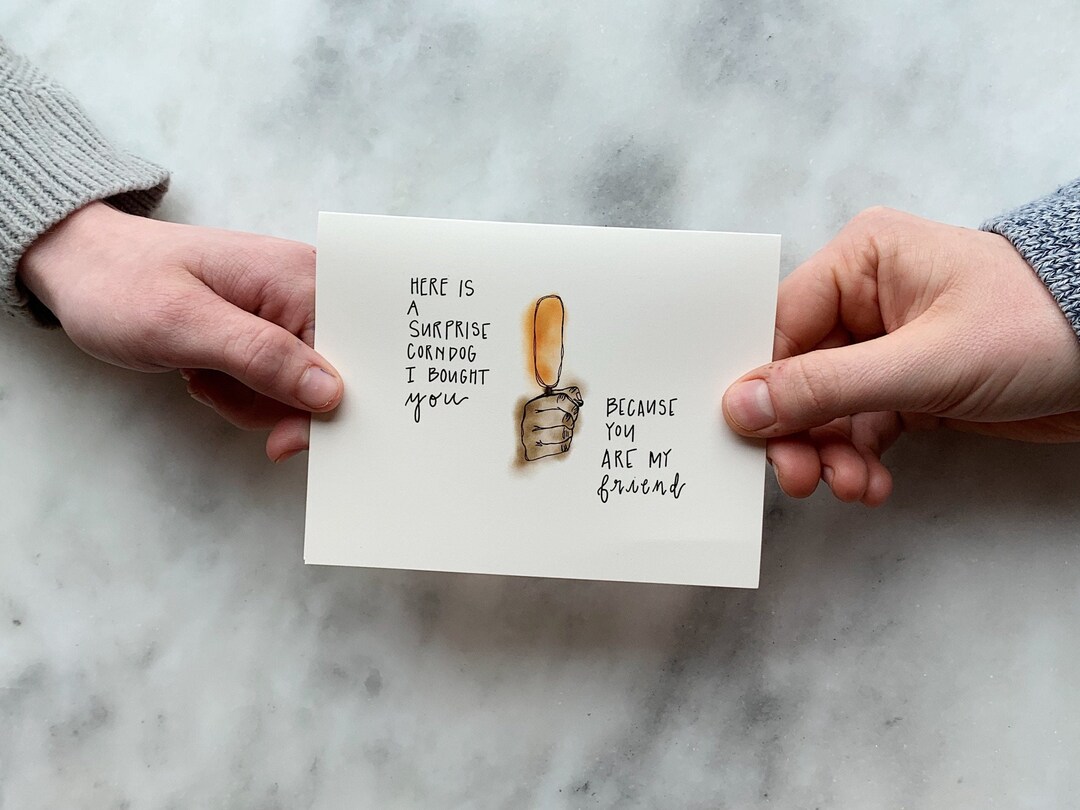 HERE IS
A
SURPRISE
CORNDOG
I BOUGHT
you
BECAUSE
YOU
ARE MY
friend